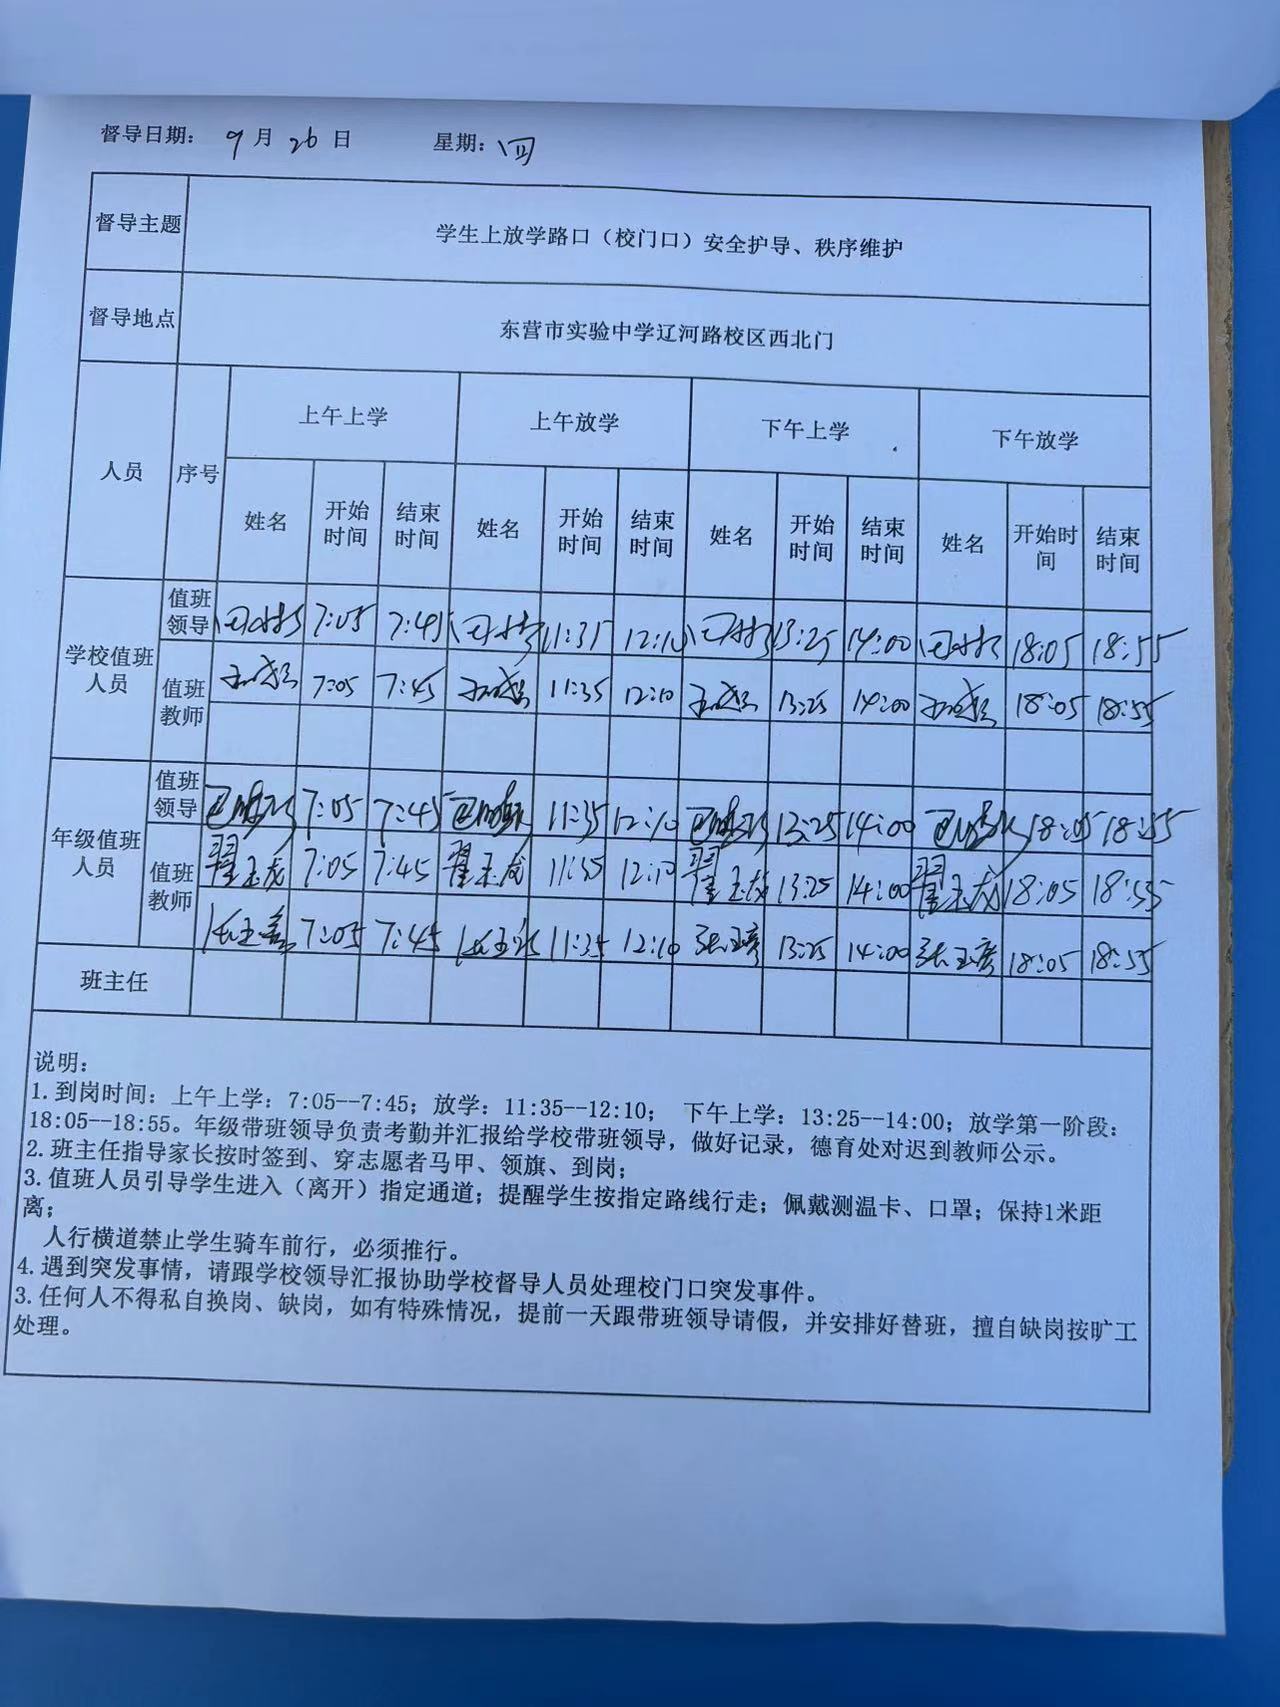 督导日期: 9月26日 星期:四
督导主题 学生上放学路口（校门口）安全护导、秩序维护
督导地点 东营市实验中学辽河路校区西北门
人员 序号 上午上学 上午放学 下午上学 下午放学
姓名 开始时间 结束时间 姓名 开始时间 结束时间 姓名 开始时间 结束时间 姓名 开始时间 结束时间
学校值班人员 值班领导 7:05 7:45 11:35 12:10 13:25 14:00 18:05 18:55
值班教师 7:05 7:45 11:35 12:10 13:25 14:00 18:05 18:55
年级值班人员 值班领导 7:05 7:45 11:35 12:10 13:25 14:00 18:05 18:55
值班教师 翟玉龙 7:05 7:45 翟玉龙 11:35 12:10 翟玉龙 13:25 14:00 翟玉龙 18:05 18:55
张玉彦 7:05 7:45 张玉彦 11:35 12:10 张玉彦 13:25 14:00 张玉彦 18:05 18:55
班主任
说明:
1.到岗时间: 上午上学: 7:05--7:45; 放学: 11:35--12:10; 下午上学: 13:25--14:00; 放学第一阶段:
18:05--18:55。年级带班领导负责考勤并汇报给学校带班领导，做好记录，德育处对迟到教师公示。
2.班主任指导家长按时签到、穿志愿者马甲、领旗、到岗;
3.值班人员引导学生进入（离开）指定通道; 提醒学生按指定路线行走; 佩戴测温卡、口罩; 保持1米距
离;
人行横道禁止学生骑车前行，必须推行。
4.遇到突发事情，请跟学校领导汇报协助学校督导人员处理校门口突发事件。
3.任何人不得私自换岗、缺岗，如有特殊情况，提前一天跟带班领导请假，并安排好替班，擅自缺岗按旷工
处理。